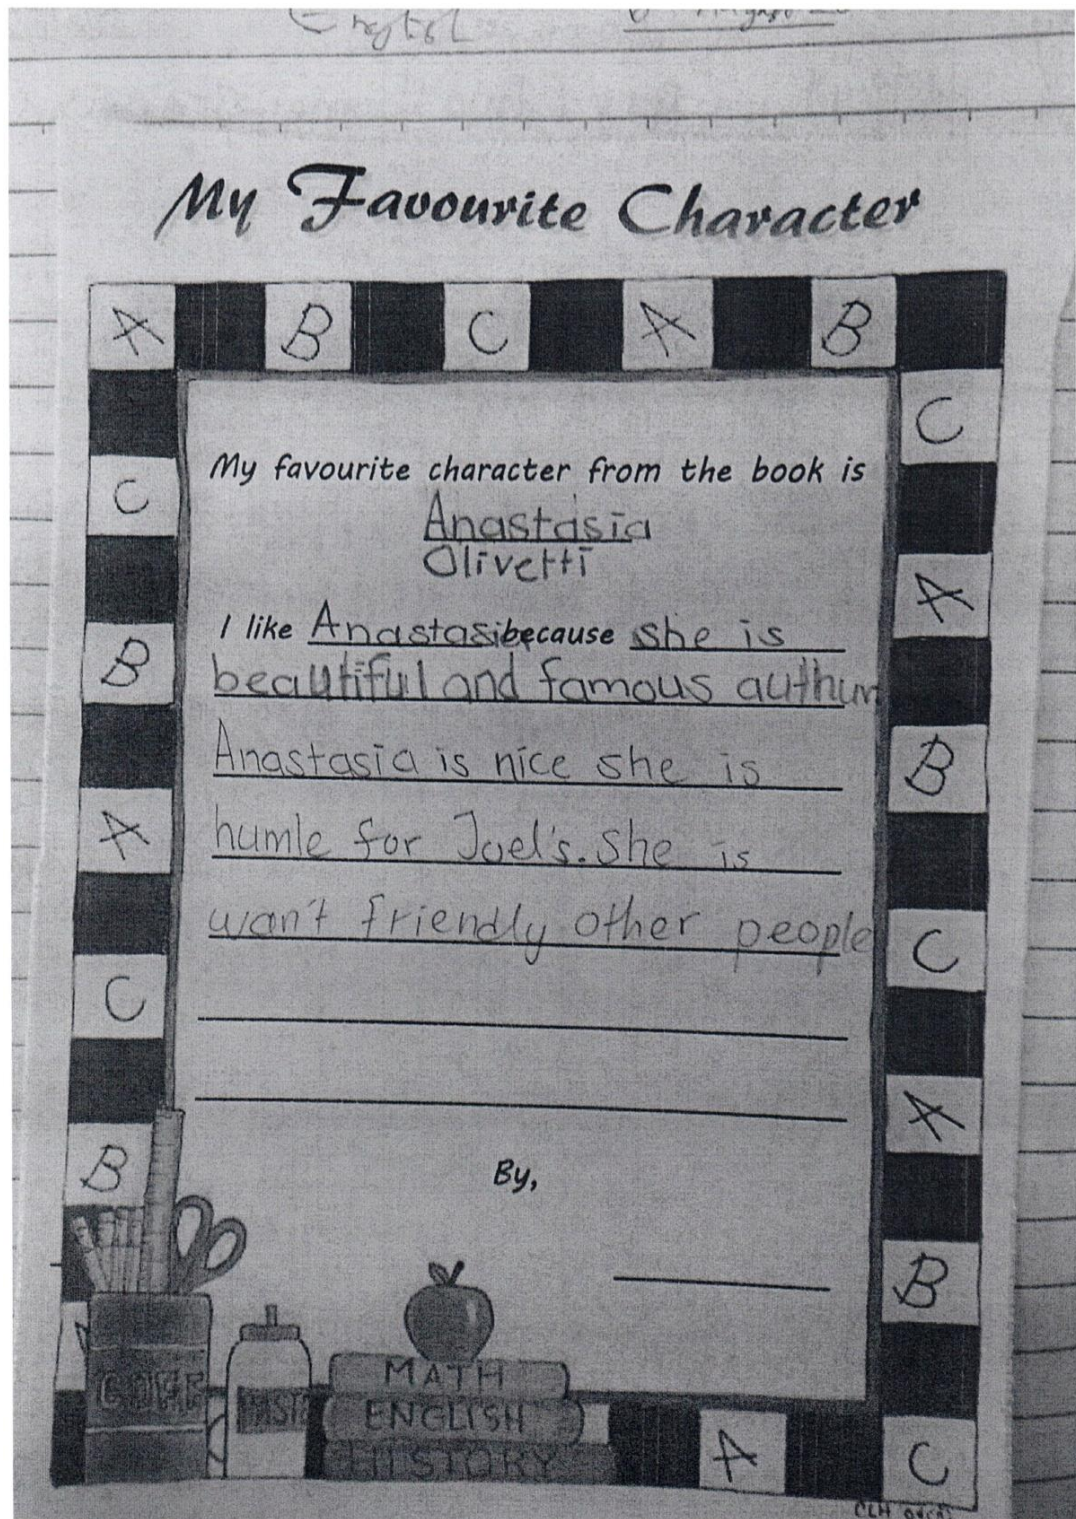 English
My Favourite Character
A B C A B
C
C
A
B
B
A
C
C
A
B
B
A C
My favourite character from the book is
Anastasia
Olivetti
I like Anastasia because she is
beautiful and famous authur
Anastasia is nice she is
humle for Joel's. She is
wan't friendly other people
By,
COFF
PASTE
MATH
ENGLISH
HISTORY
CLH